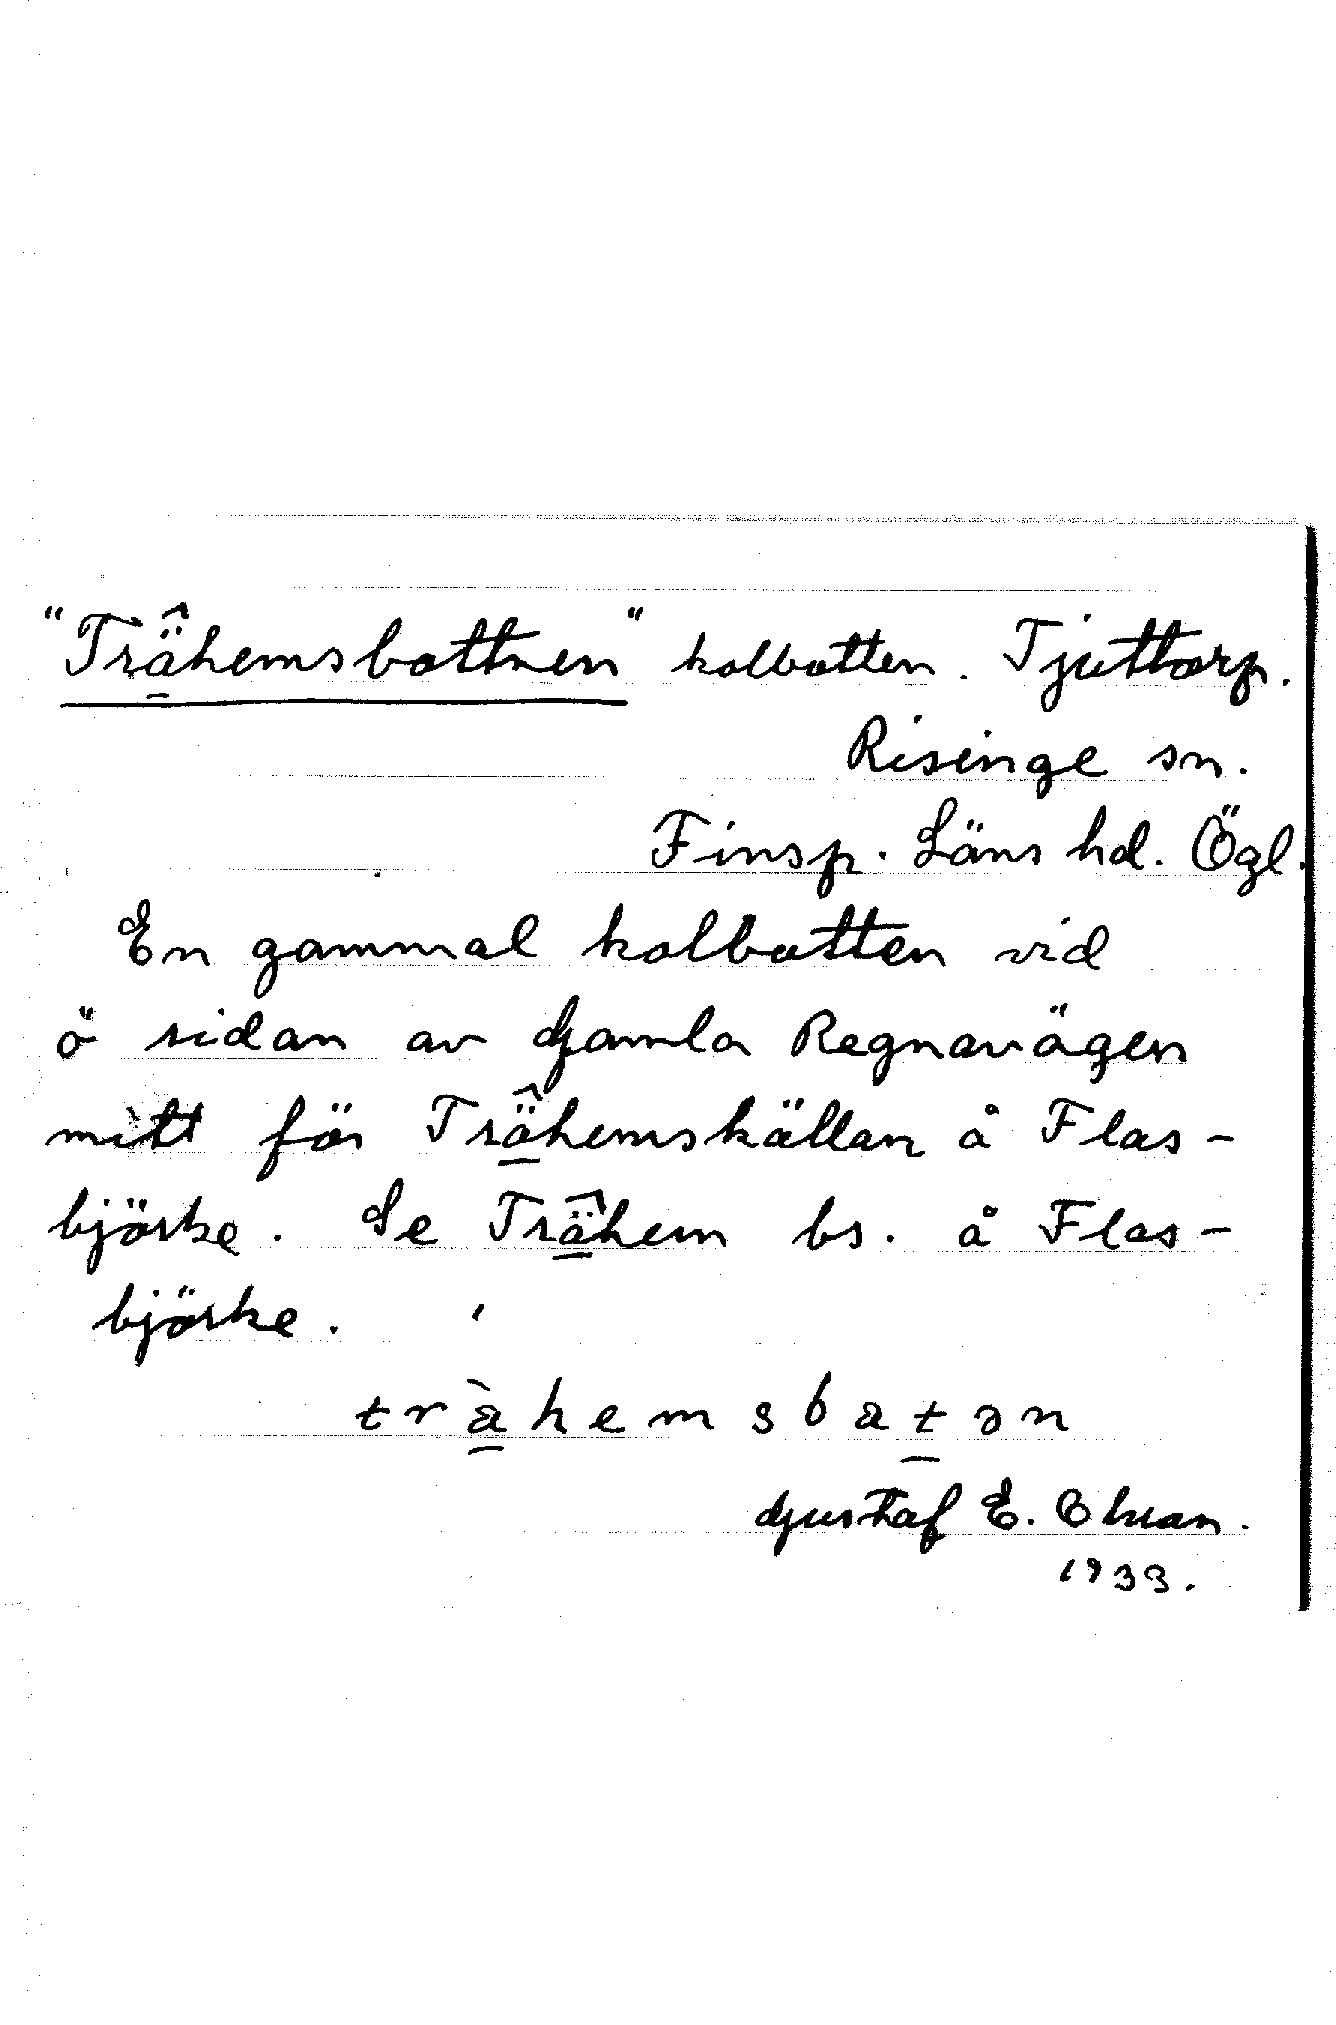 "Trähemsbottnen" kolbotten. Tjuttorp.
Risinge sn.
Finsp. Läns hd. Ögl.
En gammal kolbotten vid
ö sidan av Gamla Regnavägen
mitt för Trähemskällan å Flas-
björke. Se Trähem bs. å Flas-
björke.
tràhemsbatən
Gustaf E. Ekman.
1933.